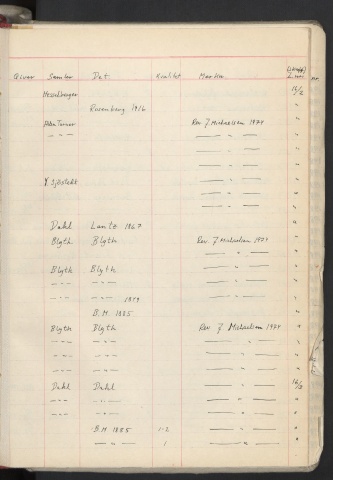 Givar Samlar Det. Kvalitet Märken
Hesselberger 15/2 "
Rosenberg 1916 "
Rev. J Michaelsen 1974 "
— " — — " — "
— " — "
— " — "
— " — "
— " — "
Dahl Lantz 1867 "
Blyth Blyth Rev. J Michaelsen 1974 "
— " — "
Blyth Blyth — " — "
— " — — " — — " — "
— " — — " — 1879 — " — "
B.M. 1885 "
Blyth Blyth Rev. J Michaelsen 1974 "
— " — — " — — " — "
— " — — " — — " — "
— " — — " — — " — "
Dahl Dahl — " — 16/2
— " — — " — — " — "
— " — — " — — " — "
B.M. 1885 1-2 — " — "
— " — 1 — " — "